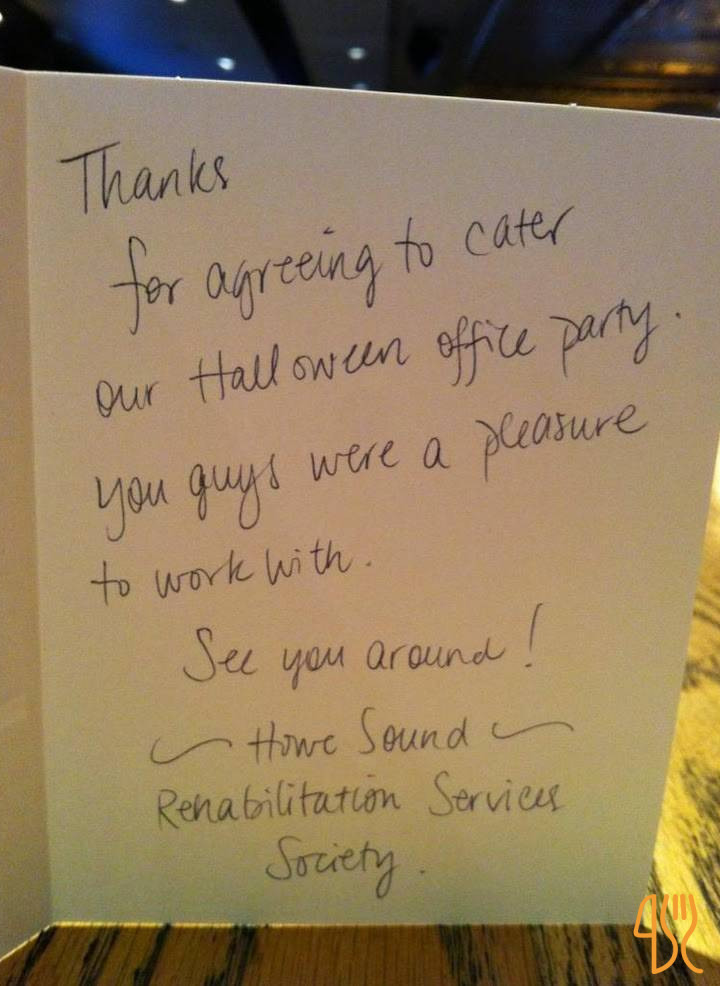 Thanks
for agreeing to cater
our Halloween office party.
you guys were a pleasure
to work with.
See you around!
~ Howe Sound ~
Rehabilitation Services
Society.